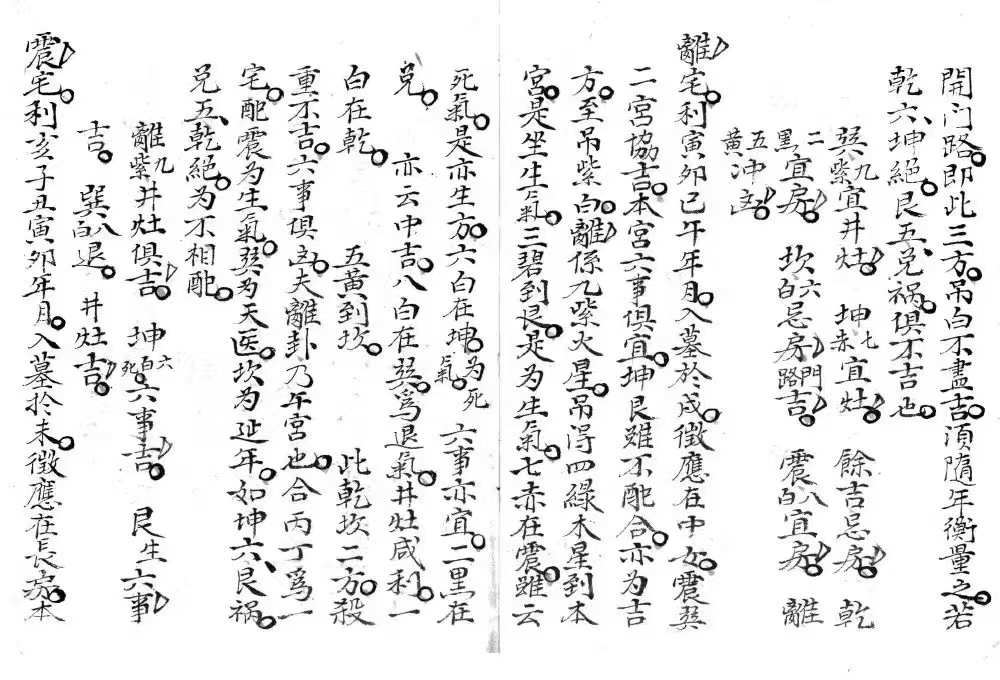 開门路。即此三方。吊白不盡吉。湏隨年衡量之。若
乾六、坤絕。艮五、兌禍。俱不吉也。
巽九紫宜井灶。坤七赤宜灶。餘吉忌房。乾
二黑宜房。坎六白忌房門路吉。震八白宜房。離
五黃冲凶。
離宅。利寅卯巳午年月。入墓於戍。徵應在中女。震巽
二宮協吉。本宮六事俱宜。坤艮雖不配合。亦为吉
方。至吊紫白。離係九紫火星。吊淂四綠木星到本
宮。是坐生氣。三碧到艮。是为生氣。七赤在震。雖云
死氣。是亦生方。六白在坤。为死氣。六事亦宜。二黑在
兌。亦云中吉。八白在巽。爲退氣。井灶咸利。一
白在乾。五黃到坎。此乾坎二方。殺
重不吉。六事俱凶。夫離卦乃午宮也。合丙丁爲一
宅。配震为生氣。巽为天医。坎为延年。如坤六、艮禍。
兌五、乾絕。为不相配。
離九紫井灶俱吉。坤六白死六事吉。艮生六事
吉。巽八白退。井灶吉。
震宅。利亥子丑寅卯年月。入墓於未。徵應在長房。本